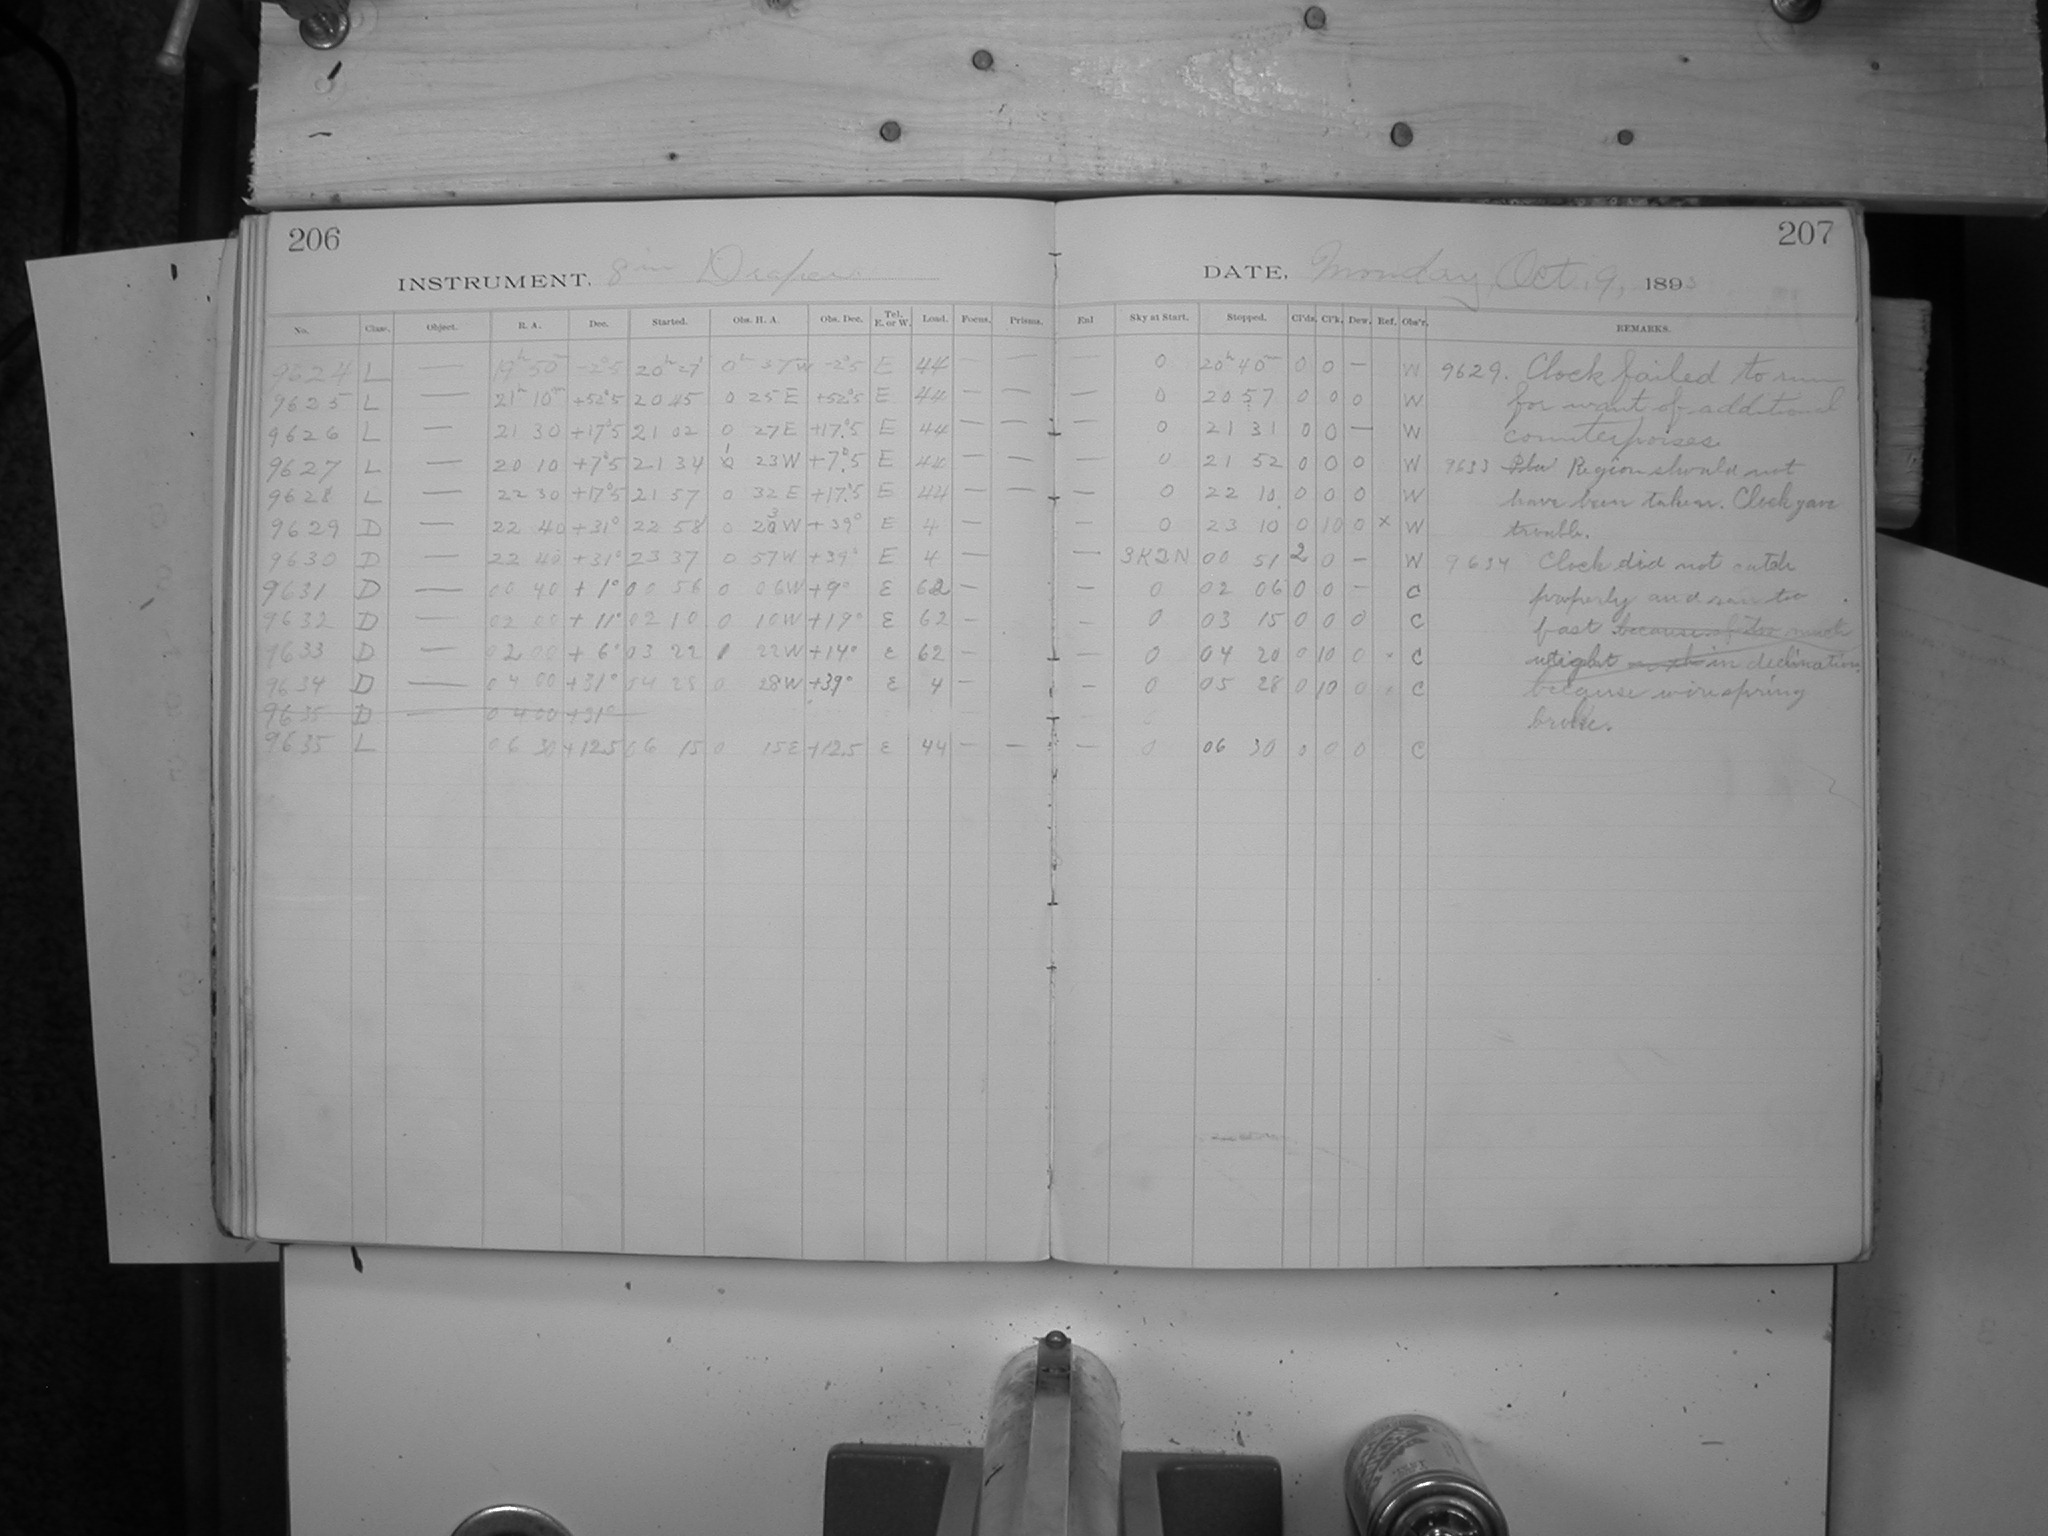 206
207
INSTRUMENT. 8 in Draper
DATE. Monday, Oct. 9, 1893
No. Class. Object. R. A. Dec. Started. Obs. H. A. Obs. Dec. Tel. E. or W. Load. Focus. Prisms. Enl Sky at Start. Stopped. Cl'ds. Cl'k. Dew. Ref. Obs'r. REMARKS.
9624 L — 19h 50m -2°5 20h 27 0h 37W -2°5 E 44 — — — 0 20h 40m 0 0 — W
9625 L — 21h 10m +52°5 20 45 0 25 E +52°5 E 44 — — — 0 20 57 0 0 0 W
9626 L — 21 30 +17°5 21 02 0 27 E +17°5 E 44 — — — 0 21 31 0 0 — W
9627 L — 20 10 +7°5 21 34 1 23 W +7°5 E 44 — — 0 21 52 0 0 0 W
9628 L — 22 30 +17°5 21 57 0 32 E +17°5 E 44 — — — 0 22 10 0 0 0 W
9629 D 22 40 +31° 22 58 0 W +39° E 4 — — 0 23 10 0 10 0 × W
9630 D 22 40 +31° 23 37 0 57 W +39° E 4 — — 3K2N 00 51 2 0 — W
9631 D — 00 40 +1° 00 56 0 06 W +9° E 62 — — 0 02 06 0 0 — C
9632 D — 02 00 +11° 02 10 0 10 W +19° E 62 — — 0 03 15 0 0 0 C
9633 D — 02 00 +6° 03 22 1 22 W +14° E 62 — — 0 04 20 0 10 0 C
9634 D — 04 00 +31° 04 28 0 28 W +39° E 4 — — 0 05 28 0 10 0 C
9635 D — 0 4 00 +31°
9635 L 06 30 +12.5 06 15 0 15 E +12.5 E 44 — — — 0 06 30 0 0 0 C
9629. Clock failed to run
for want of additional
counterpoises.
9633 Region should not
have been taken. Clock gave
trouble.
9634 Clock did not catch
properly and ran too
fast because of too much
weight in declination
because wire spring
broke.